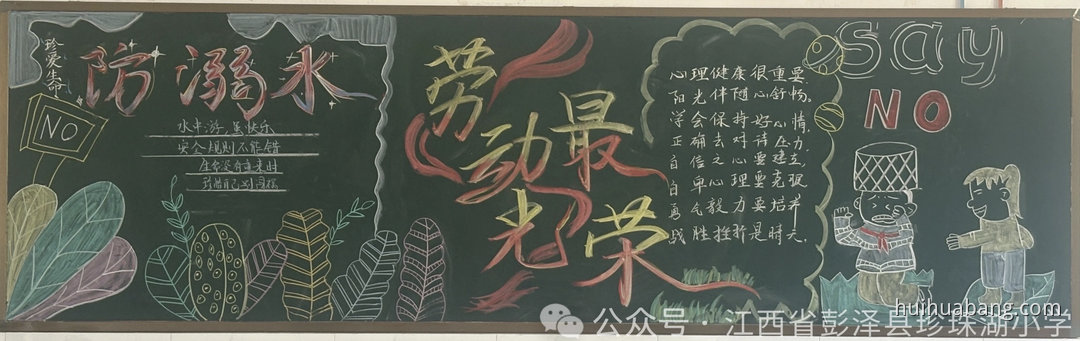 珍爱生命
防溺水
NO
水中游,虽快乐
安全规则不能错
生命没有重来时
劳动最光荣
心理健康很重要,
阳光伴随心舒畅。
学会保持好心情,
正确去对诗压力,
自信之心要建立,
自卑心理要克服
勇气毅力要培养
战胜挫折是时元.
say
NO
公众号·江西省彭泽县珍珠湖小学
huihuabang.com